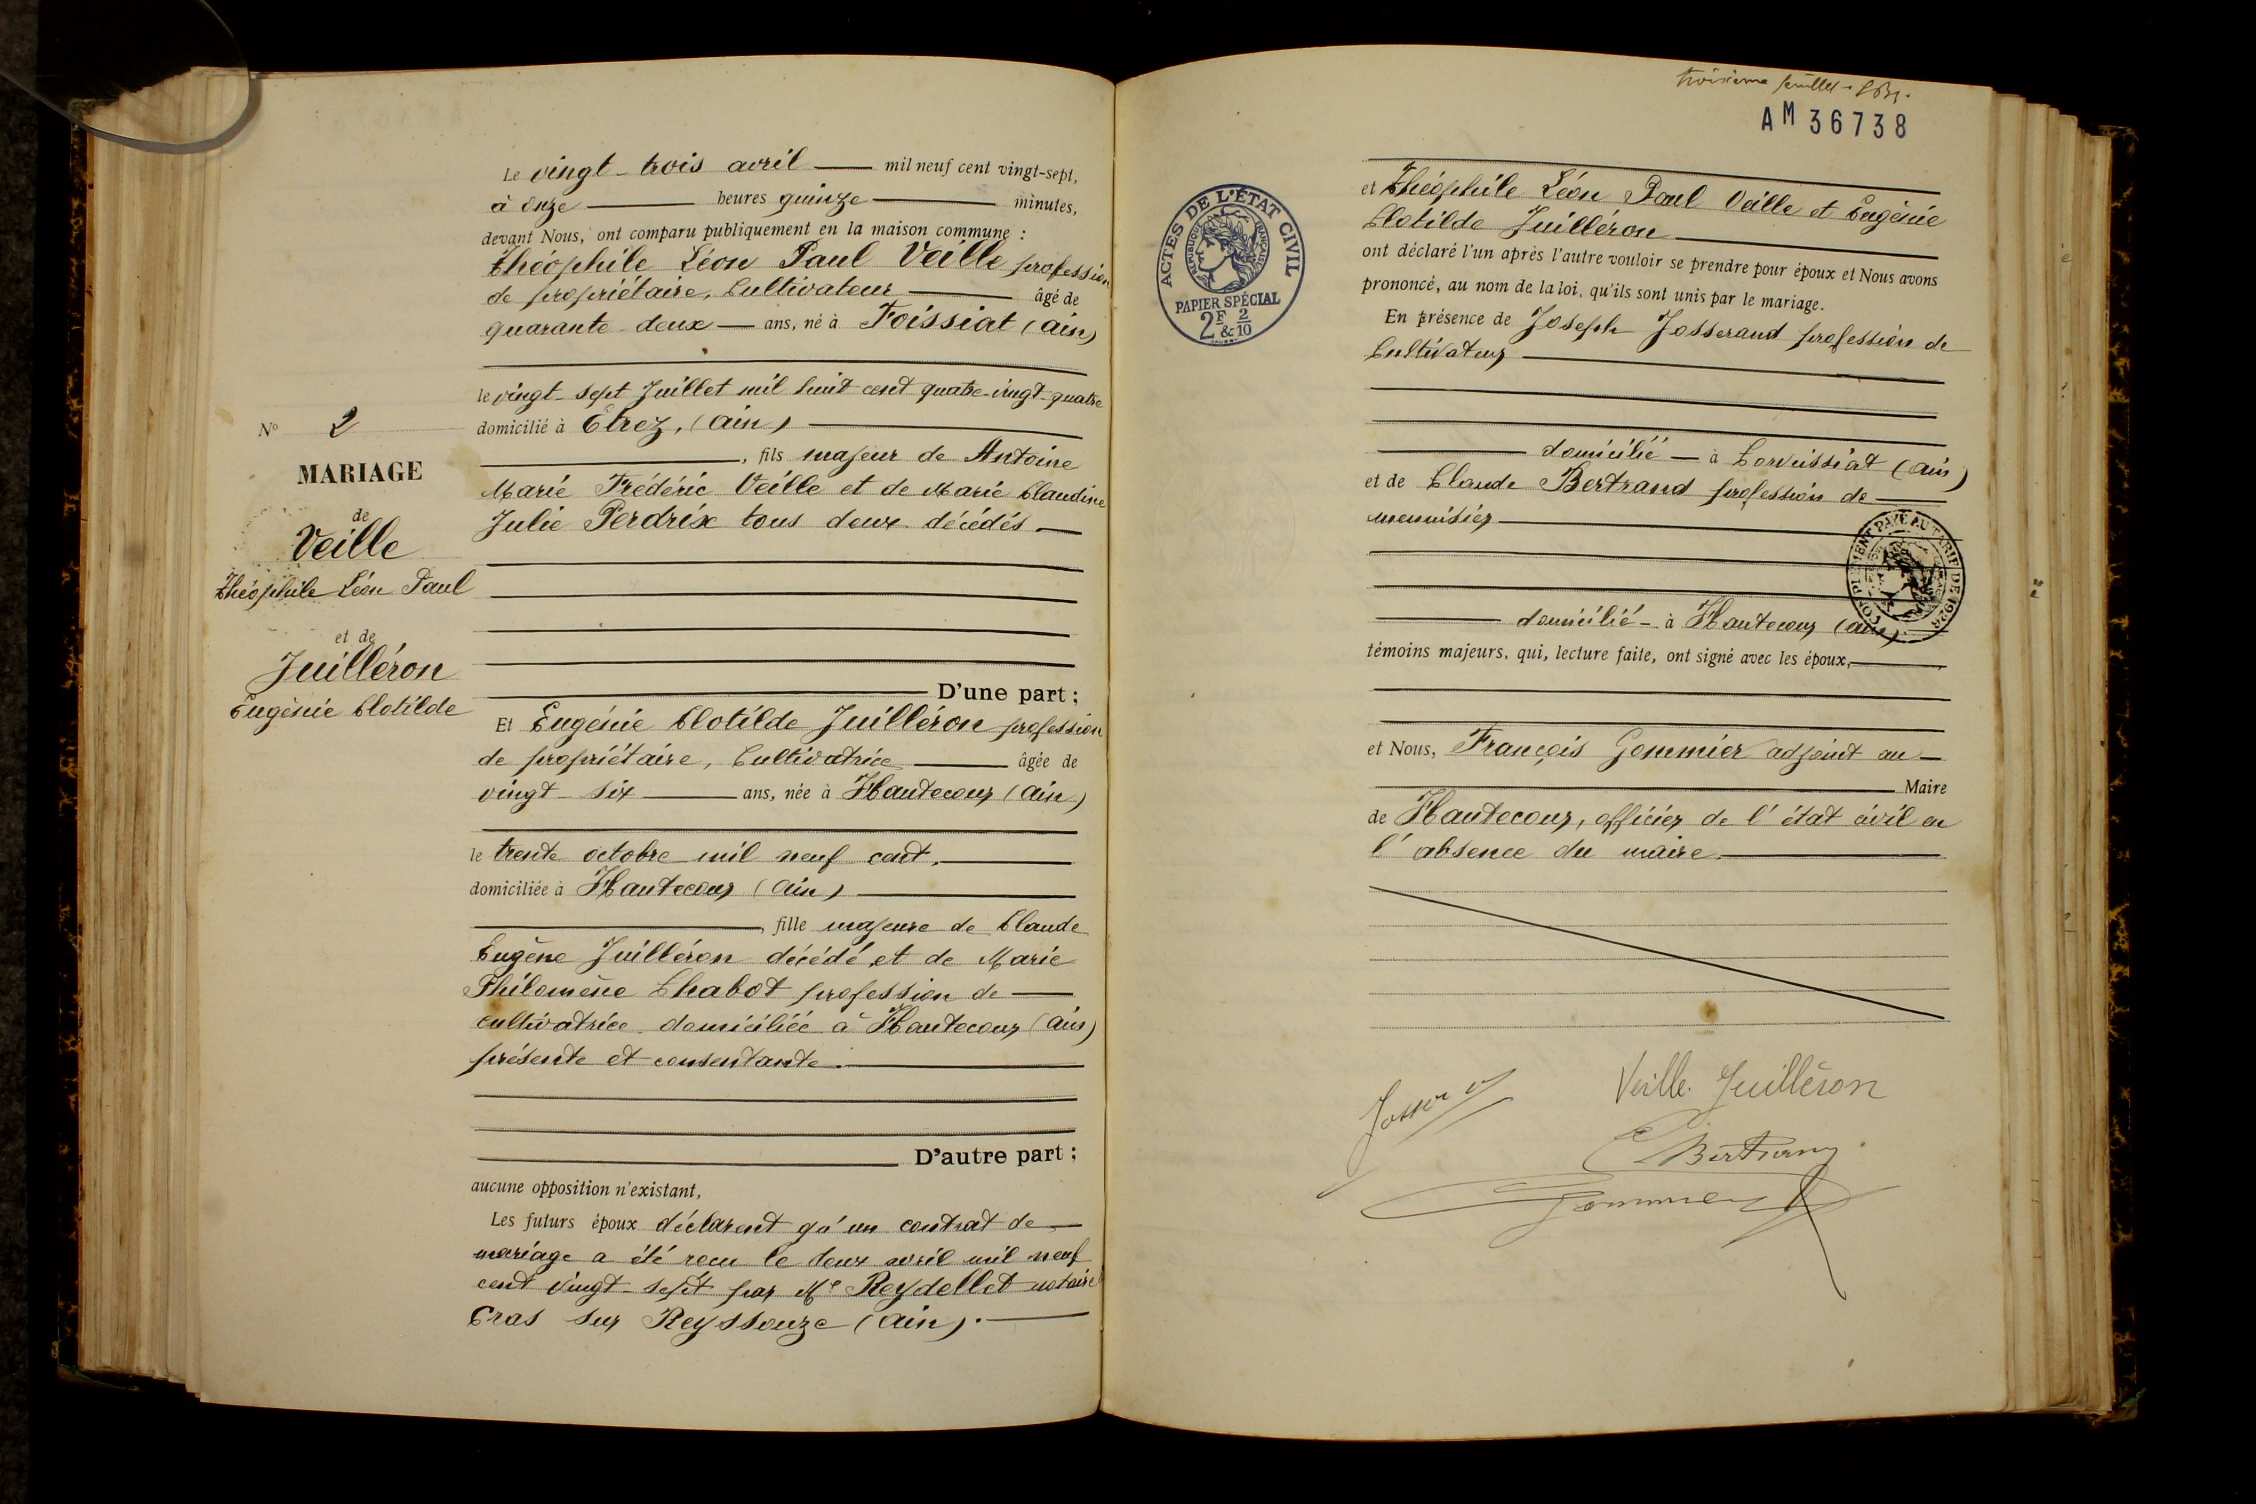 Le vingt-trois avril mil neuf cent vingt-sept,
à onze heures quinze minutes,
devant Nous, ont comparu publiquement en la maison commune :
Théophile Léon Paul Veille profession
de propriétaire, Cultivateur âgé de
quarante-deux ans, né à Foissiat (Ain)
le vingt-sept Juillet mil huit cent quatre-vingt-quatre
domicilié à Etrez, (Ain)
, fils majeur de Antoine
Marie Frédéric Veille et de Marie Claudine
Julie Perdrix tous deux décédés
D'une part ;
Et Eugénie Clotilde Juilléron profession
de propriétaire, Cultivatrice âgée de
vingt-six ans, née à Hautecour (Ain)
le trente octobre mil neuf cent,
domiciliée à Hautecour (Ain)
, fille majeure de Claude
Eugène Juilléron décédé et de Marie
Philomène Chabot profession de
cultivatrice domiciliée à Hautecour (Ain)
présente et consentante.
D'autre part ;
aucune opposition n'existant,
Les futurs époux déclarent qu'un contrat de
mariage a été reçu le deux avril mil neuf
cent vingt-sept par Me Reydellet notaire
Cras sur Reyssouze (Ain).
No 2
MARIAGE
de
Veille
Théophile Léon Paul
et de
Juilléron
Eugénie Clotilde
troisième feuillet
AM 36738
ACTES DE L'ÉTAT CIVIL
RÉPUBLIQUE FRANÇAISE
PAPIER SPÉCIAL
2F & 2/10
et Théophile Léon Paul Veille et Eugénie
Clotilde Juilléron
ont déclaré l'un après l'autre vouloir se prendre pour époux et Nous avons
prononcé, au nom de la loi, qu'ils sont unis par le mariage.
En présence de Joseph Josserand profession de
Cultivateur
domicilié à Corveissiat (Ain)
et de Claude Bertrand profession de
menuisier
COMPLÉMENT PAYÉ AU TARIF DE
domicilié à Hautecour (Ain)
témoins majeurs, qui, lecture faite, ont signé avec les époux,
et Nous, François Gommier adjoint au
Maire
de Hautecour, officier de l'état civil en
l'absence du maire.
Veille Juilléron
Bertrand
Gommier